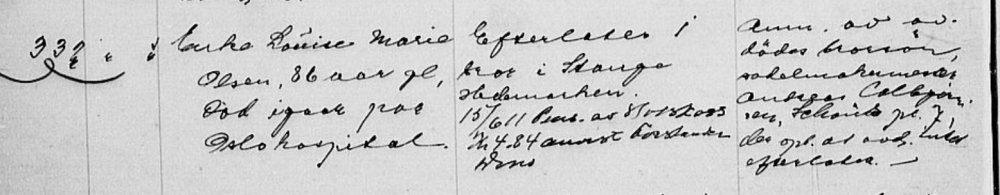 332 " "
Enke Louise Marie
Olsen, 86 aar gl,
död igaar paa
Oslo hospital.
Efterlater 1
bror i Stange
Hedemarken.
15/6 11
4.84
Anm. av av-
dödes brorsön,
sadelmakermester
Andreas Colbjörn-
sen, Schous pl. 7,
der opl. at avd. intet
efterlater. —